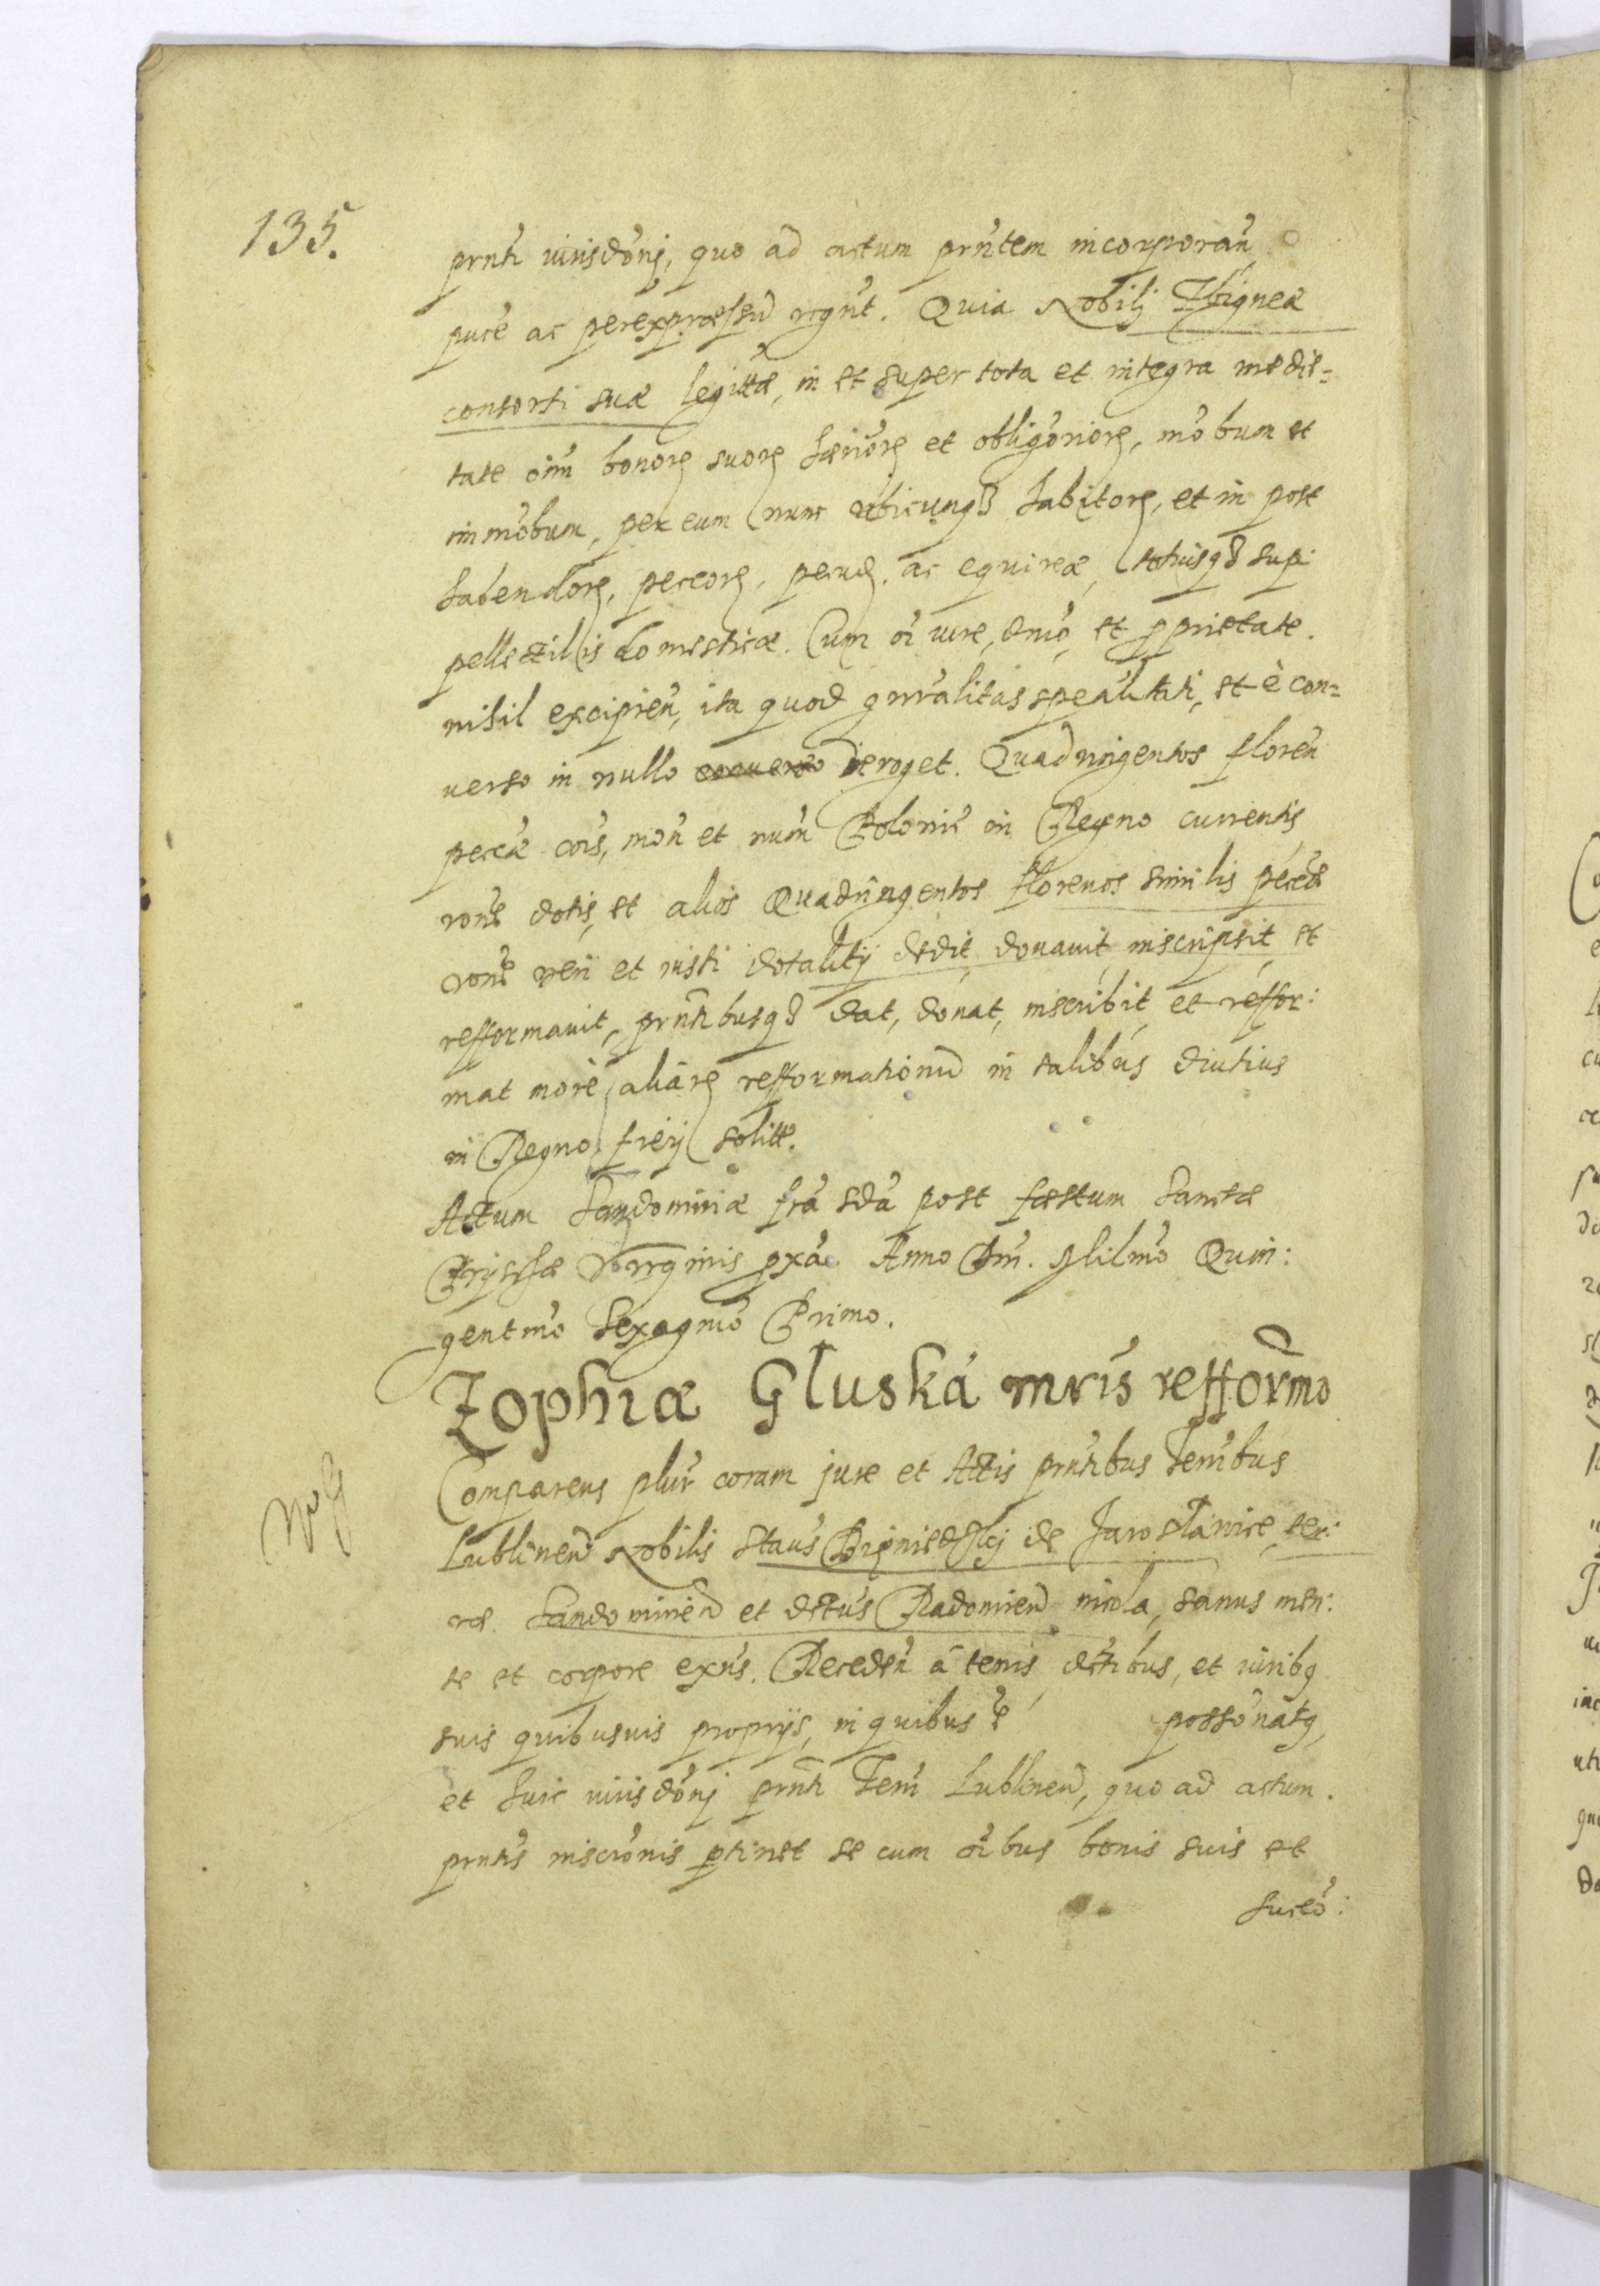 135.
prnti iurisdoni, quo ad actum prntem incorporan
pure ac perexpressu rcgnt. Quia Nobili Zbigneæ
consorti suæ legittæ, in et super tota et integra medie=
tate oim bonor suor hærior et obligorior, mobum et
immobum, per eum nunc ubicunq habitor, et in post
habendor, pecor, pecud. ac equireæ, totiusq supi
pellectillis domesticæ. Cum oi iure, dnio, et pprietate.
nihil excipien, ita quod gnralitas spealitati, et è con=
verso in nullo deroget. Quadringentos floren
pecæ cois, mon et num Polonic in Regno currentis
rone dotis, et alios Quadringentos florenos similis peceæ
rone veri et iusti dotalitij dedit donauit inscripsit et
refformauit, prntibusq dat, donat, inscribit et reffor:
mat more aliar refformationu in talibus diutius
in Regno fieri solitt.
Actum Sandomiriæ fra sda post fæstum Sanctæ
Priscæ Virginis pxa. Anno Dni. Mlilmo Quin:
gentmo Sexagmo Primo.
Zophiæ Gluska mris refformo
Comparens plur coram jure et Actis prntibus Temribus
Lublinen Nobilis Staus de Jaroslauice ter:
ræ Sandomirien et dctus Radomien incola, sanus men:
te et corpore exns. Receden à terris dctibus, et iuribq
suis quibusuis proprijs, in quibus e possonatq,
et huic iurisdoni prnti Temr Lublinen, quo ad actum.
prntis inscronis ptinet se cum oibus bonis suis et
suceo: